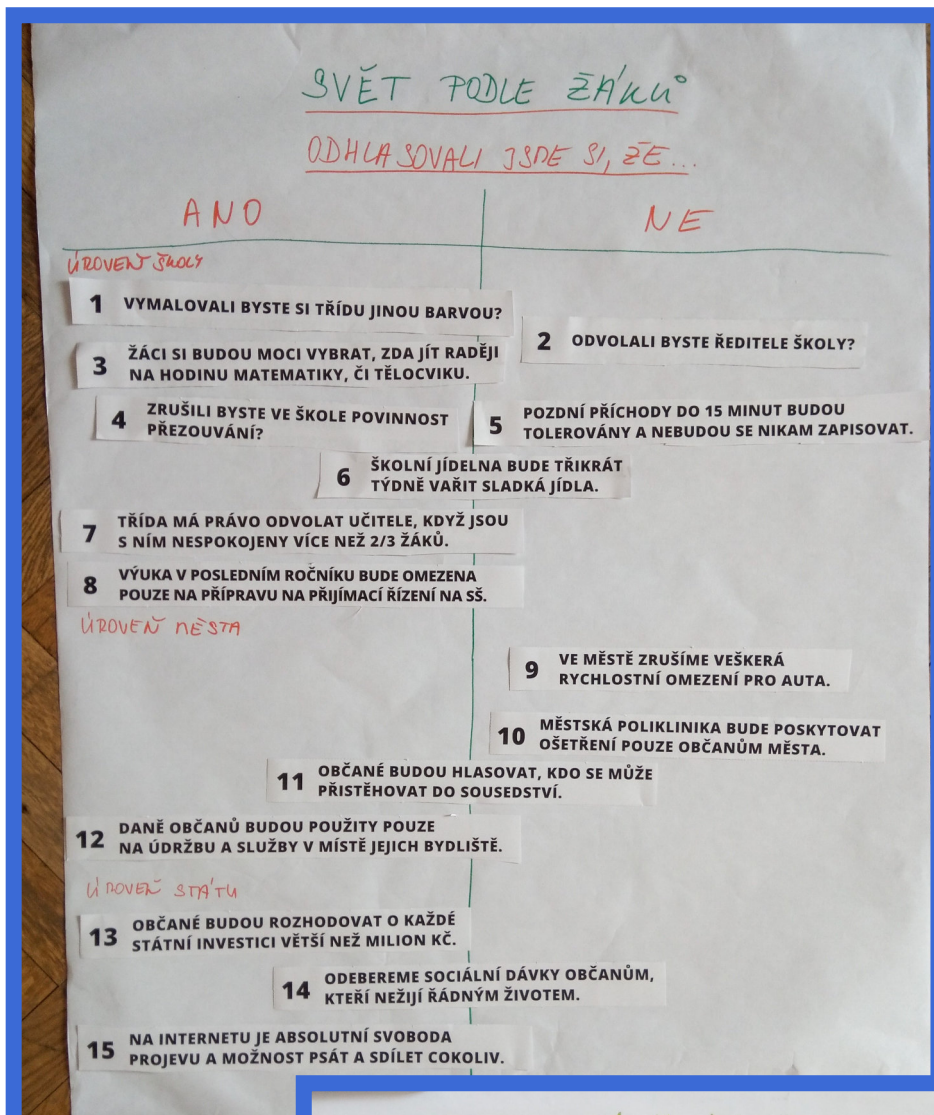 SVĚT PODLE ŽÁKŮ
ODHLASOVALI JSME SI, ŽE...
ANO
NE
ÚROVEŇ ŠKOLY
1 VYMALOVALI BYSTE SI TŘÍDU JINOU BARVOU?
2 ODVOLALI BYSTE ŘEDITELE ŠKOLY?
3 ŽÁCI SI BUDOU MOCI VYBRAT, ZDA JÍT RADĚJI
NA HODINU MATEMATIKY, ČI TĚLOCVIKU.
4 ZRUŠILI BYSTE VE ŠKOLE POVINNOST
PŘEZOUVÁNÍ?
5 POZDNÍ PŘÍCHODY DO 15 MINUT BUDOU
TOLEROVÁNY A NEBUDOU SE NIKAM ZAPISOVAT.
6 ŠKOLNÍ JÍDELNA BUDE TŘIKRÁT
TÝDNĚ VAŘIT SLADKÁ JÍDLA.
7 TŘÍDA MÁ PRÁVO ODVOLAT UČITELE, KDYŽ JSOU
S NÍM NESPOKOJENY VÍCE NEŽ 2/3 ŽÁKŮ.
8 VÝUKA V POSLEDNÍM ROČNÍKU BUDE OMEZENA
POUZE NA PŘÍPRAVU NA PŘIJÍMACÍ ŘÍZENÍ NA SŠ.
ÚROVEŇ MĚSTA
9 VE MĚSTĚ ZRUŠÍME VEŠKERÁ
RYCHLOSTNÍ OMEZENÍ PRO AUTA.
10 MĚSTSKÁ POLIKLINIKA BUDE POSKYTOVAT
OŠETŘENÍ POUZE OBČANŮM MĚSTA.
11 OBČANÉ BUDOU HLASOVAT, KDO SE MŮŽE
PŘISTĚHOVAT DO SOUSEDSTVÍ.
12 DANĚ OBČANŮ BUDOU POUŽITY POUZE
NA ÚDRŽBU A SLUŽBY V MÍSTĚ JEJICH BYDLIŠTĚ.
ÚROVEŇ STÁTU
13 OBČANÉ BUDOU ROZHODOVAT O KAŽDÉ
STÁTNÍ INVESTICI VĚTŠÍ NEŽ MILION KČ.
14 ODEBEREME SOCIÁLNÍ DÁVKY OBČANŮM,
KTEŘÍ NEŽIJÍ ŘÁDNÝM ŽIVOTEM.
15 NA INTERNETU JE ABSOLUTNÍ SVOBODA
PROJEVU A MOŽNOST PSÁT A SDÍLET COKOLIV.